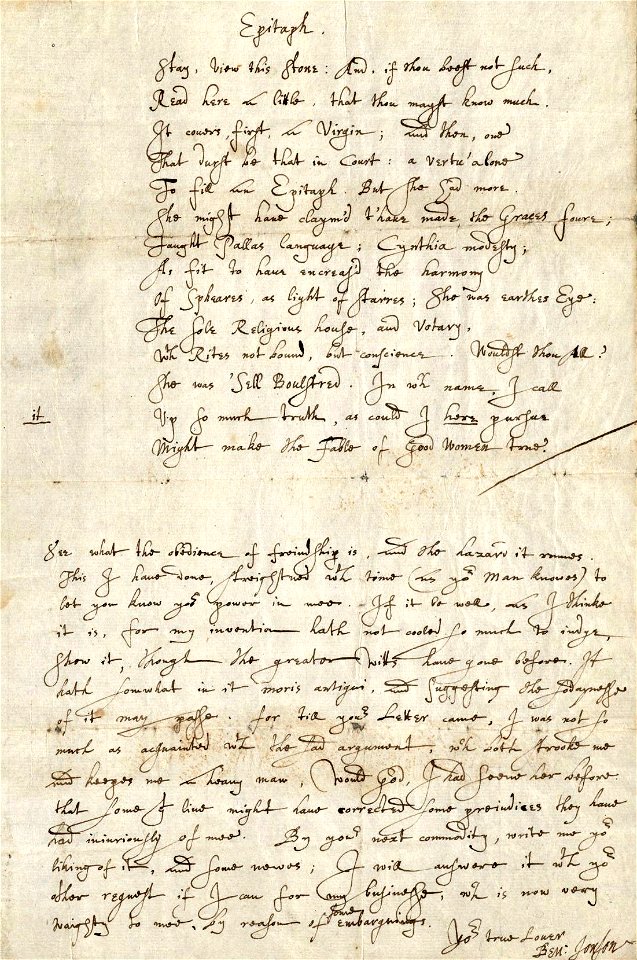 Epitaph.
Stay, view this Stone: And, if thou beest not such,
Read here a little, that thou mayst know much.
It covers, first, a Virgin; and then, one
That durst be that in Court: a vertu' alone
To fill an Epitaph. But she had more.
She might have claym'd t'have made the Graces foure;
Taught Pallas language; Cynthia modesty;
As fit to have encreas'd the harmony
Of Spheares, as light of starres; She was earthes Eye:
The sole Religious house, and Votary,
Wth Rites not bound, but conscience. Wouldst thou All?
She was 'Sell Boulstred. In wch name, I call
it
Up so much truth, as could I here pursue
Might make the Fable of Good Women true.
See what the obedience of freindship is, and the hazard it runnes.
This I have done, streightned wth time (as yor Man knowes) to
let you know yor power in mee. If it be well, as I thinke
it is, for my invention hath not cooled so much to iudge,
show it, though the greater Witts have gone before. It
hath somwhat in it moris antiqui, and suggesting the sodaynesse
of it may passe. For till yor Letter came, I was not so
much as acquainted wth the sad argument, wch both strooke me
and keepes me a heavy man, Would God, I had seene her before
that some yt live might have corrected some preiudices they have
had iniuriously of mee. By yor next commodity, write me yor
liking of it, and some newes; I will answere it wth yor
other request if I can for my businesse, wch is now very
waighty to mee, by reason of some embarquings.
Yor true Lover
Ben: Jonson